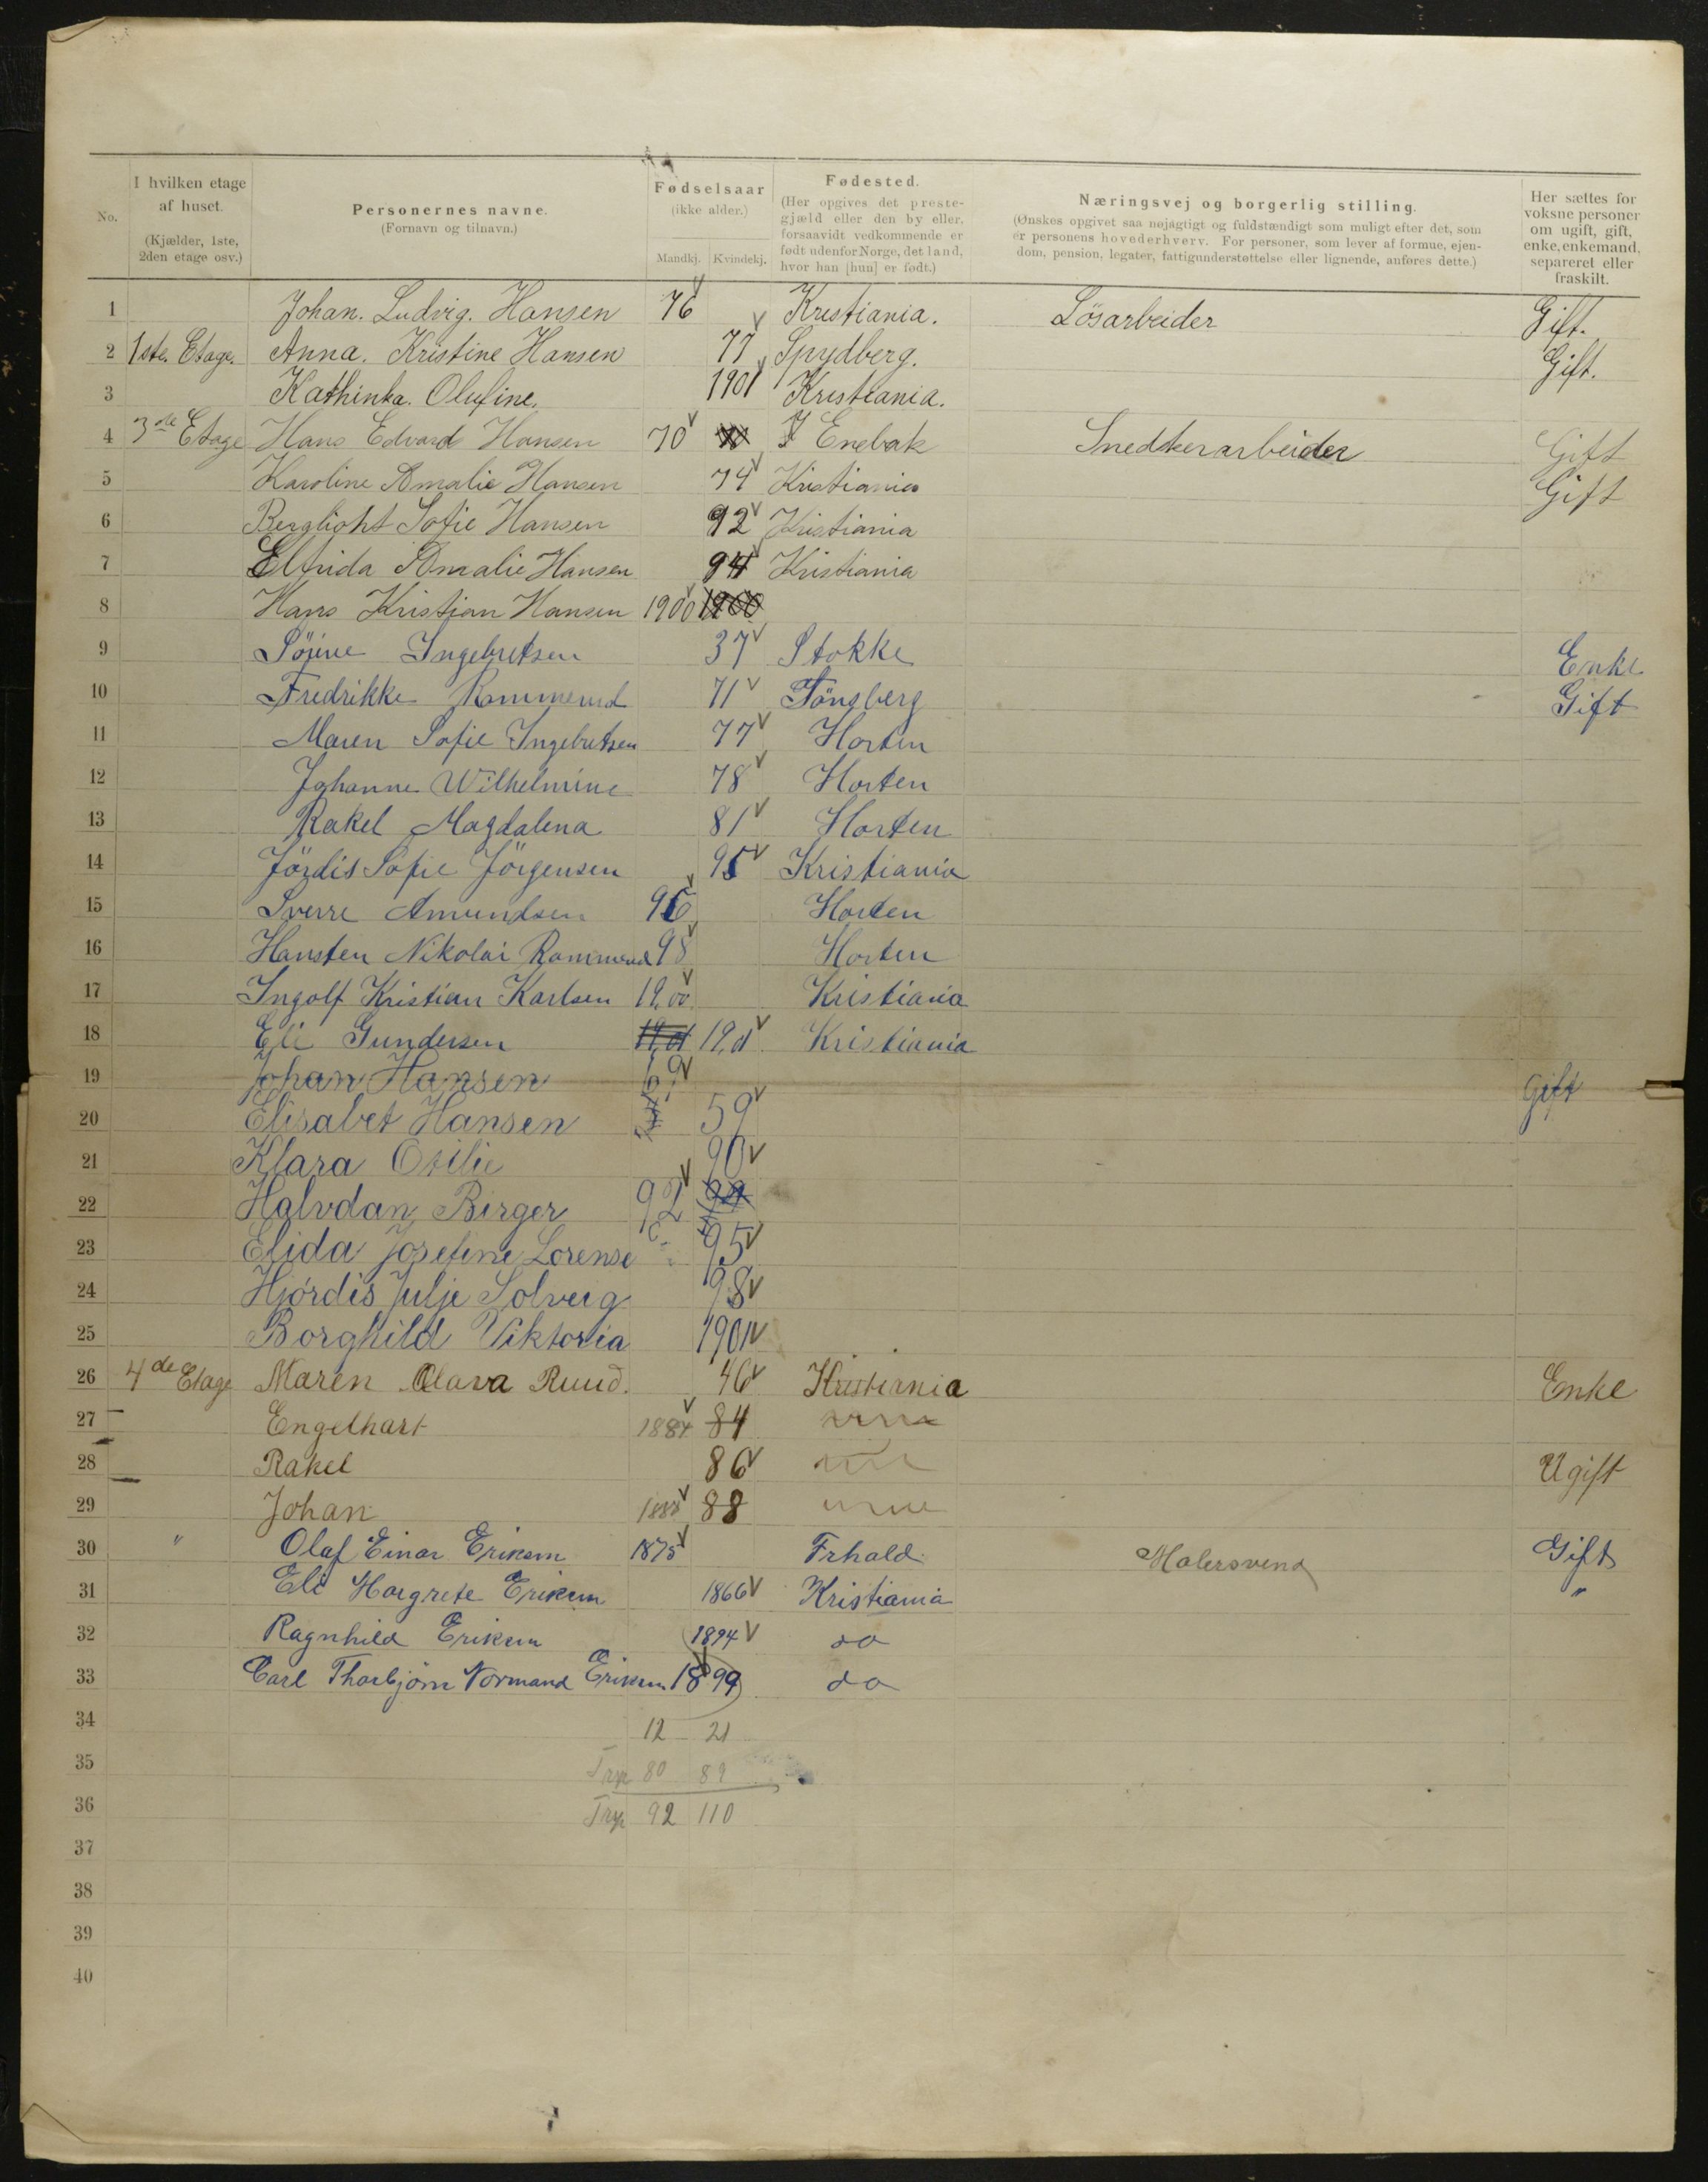 No.
I hvilken etage af huset. (Kjælder, 1ste, 2den etage osv.)
Personernes navne. (Fornavn og tilnavn.)
Fødselsaar (ikke alder.) Mandkj. Kvindekj.
Fødested. (Her opgives det prestegjæld eller den by eller, forsaavidt vedkommende er født udenfor Norge, det land, hvor han [hun] er født.)
Næringsvej og borgerlig stilling. (Ønskes opgivet saa nøjagtigt og fuldstændigt som muligt efter det, som er personens hovederhverv. For personer, som lever af formue, ejendom, pension, legater, fattigunderstøttelse eller lignende, anføres dette.)
Her sættes for voksne personer om ugift, gift, enke, enkemand, separeret eller fraskilt.
1 Johan. Ludvig. Hansen 76 Kristiania. Lösarbeider Gift.
2 1ste. Etage. Anna. Kristine Hansen 77 Spydberg. Gift.
3 Kathinka. Olufine. 1901 Kristiania.
4 3die Etage Hans Edvard Hansen 70 I Enebak Snedkerarbeider Gift
5 Karoline Amalie Hansen 74 Kristiania Gift
6 Berglioht Sofie Hansen 92 Kristiania
7 Elfrida Amalie Hansen 94 Kristiania
8 Hans Kristian Hansen 1900 1900
9 Ingebretsen 37 Stokke Enke
10 Fredrikke Rammerud 71 Tönsberg Gift
11 Maren Sofie Ingebretsen 77 Horten
12 Johanne Wilhelmine 78 Horten
13 Rakel Magdalena 81 Horten
14 Jördis Sofie Jörgensen 95 Kristiania
15 Sverre Amundsen 96 Horten
16 Hansten Nikolai Rammerud 98 Horten
17 Ingolf Kristian Karlsen 19.00 Kristiania
18 Eli Gundersen 19.01 19.01 Kristiania
19 Johan Hansen 69 Gift
20 Elisabet Hansen 59
21 Klara Otilie 90
22 Halvdan Birger 92
23 Elida Josefine Lorense 95
24 Hjördis Julje Solveig 98
25 Borghild Viktoria 1901
26 4de Etage Maren Olava Ruud. 46 Kristiania Enke
27 Engelhart 1884 84
28 Rakel 86 Ugift
29 Johan 1888 88
30 " Olaf Einar Eriksen 1875 Frhald. Malersvend Gift
31 Eli Margrete Eriksen 1866 Kristiania "
32 Ragnhild Eriksen 1894 do
33 Carl Thorbjörn Normand Eriksen 1899 do
34 12 21
35 80 89
36 92 110
37
38
39
40